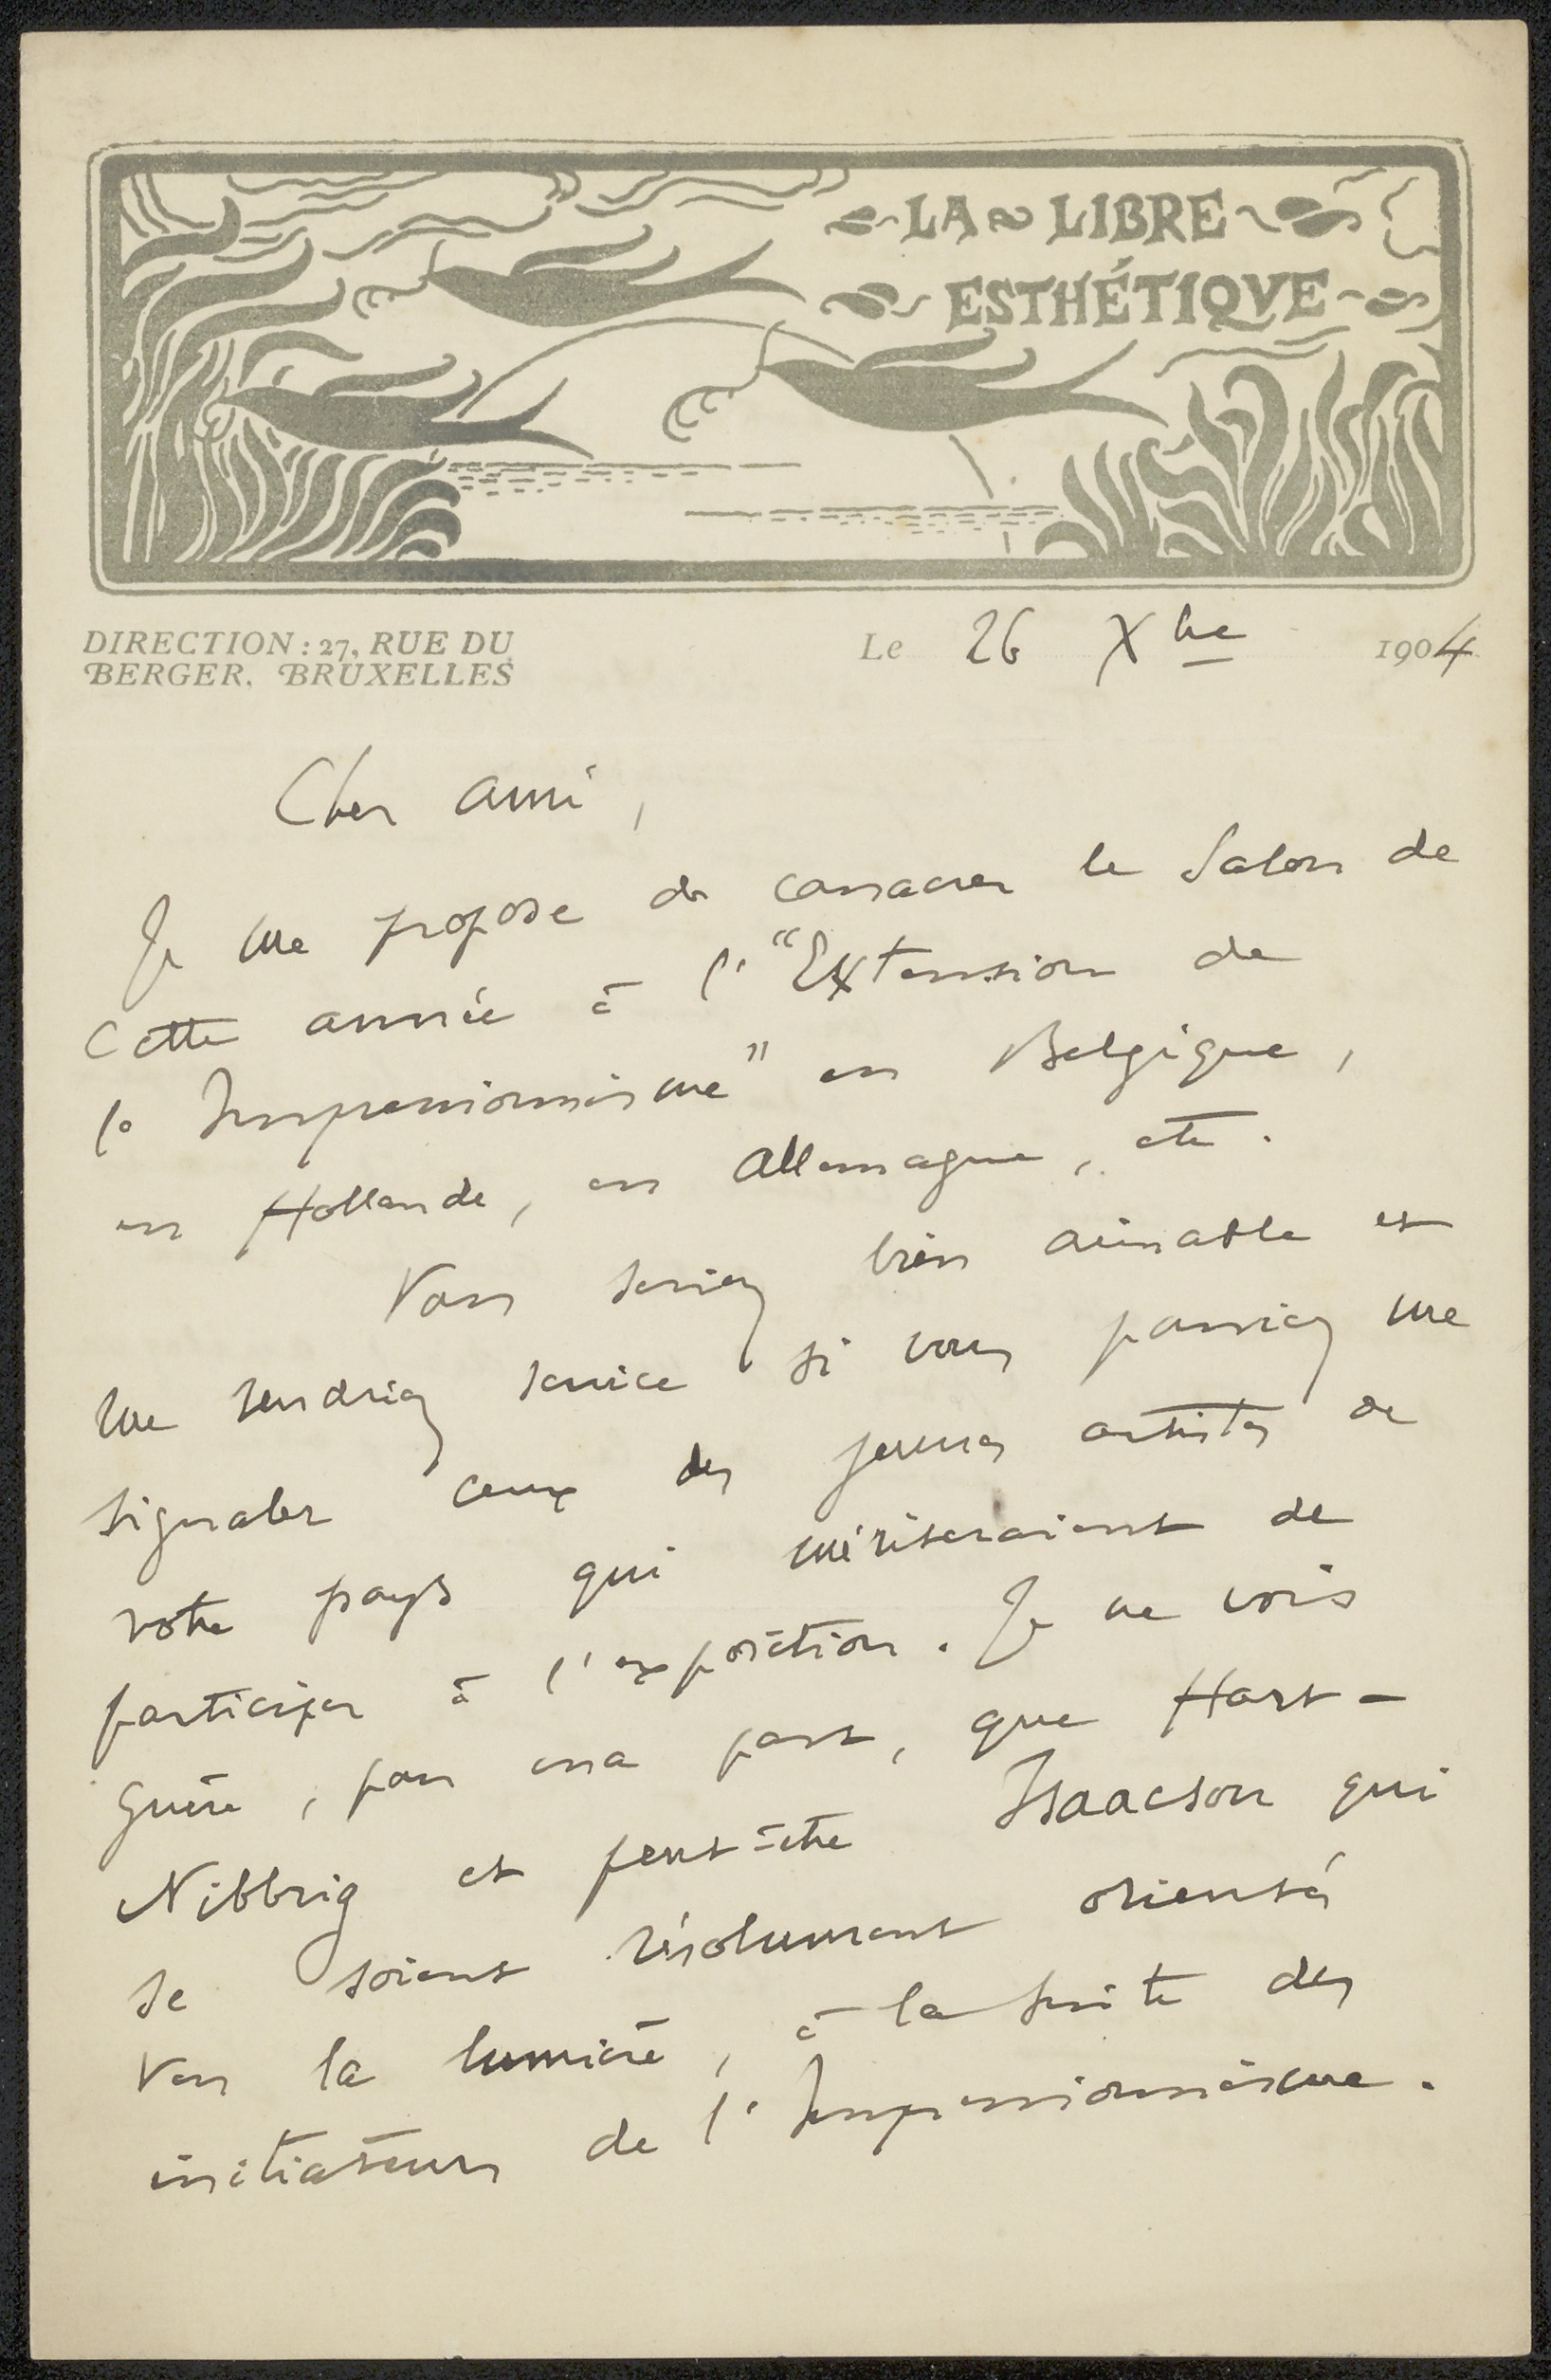 LA LIBRE
ESTHÉTIQVE
DIRECTION : 27, RUE DU
BERGER. BRUXELLES
Le 26 Xbre 1904
Cher ami,
Je me propose de consacrer le Salon de
cette année à l'"Extension de
l'Impressionnisme" en Belgique,
en Hollande, en Allemagne, etc.
Vous seriez bien aimable et
me rendriez service si vous pouviez me
signaler ceux des jeunes artistes de
votre pays qui mériteraient de
participer à l'exposition. Je ne vois
guère, pour ma part, que Hart-
Nibbrig et peut-être Isaacson qui
se soient résolument orientés
vers la lumière, à la suite des
initiateurs de l'Impressionnisme.